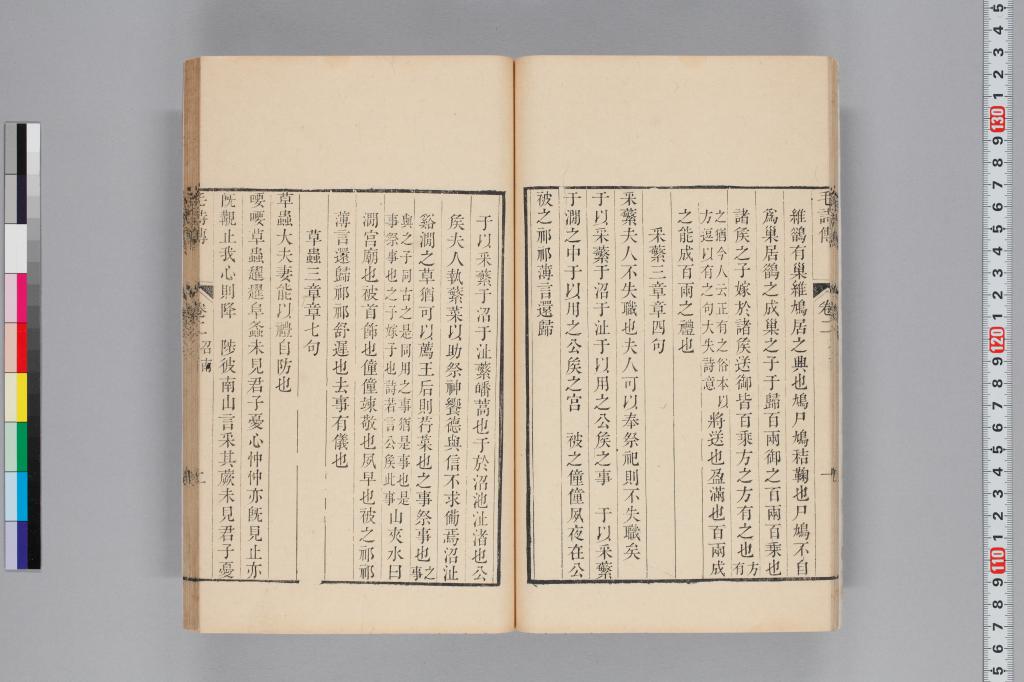 毛詩傳
卷二
維鵲有巢維鳩居之典也鳩尸鳩秸鞠也尸鳩不自
爲巢居鵲之成巢之子于歸百兩御之百兩百乘也
諸矦之子嫁於諸矦送御皆百乘方之方有之也方有
之猶今人云正有之俗本以
方逗以有之句大失詩意
將送也盈滿也百兩成
之能成百兩之禮也
采蘩三章章四句
采蘩夫人不失職也夫人可以奉祭祀則不失職矣
于以采蘩于沼于沚于以用之公矦之事 于以采蘩
于澗之中于以用之公矦之宮 被之僮僮夙夜在公
被之祁祁薄言還歸
于以采蘩于沼于沚蘩皤蒿也于於沼池沚渚也公
矦夫人執蘩菜以助祭神饗德與信不求備焉沼沚
谿澗之草猶可以薦王后則荇菜也之事祭事也之事
與之子同古之是同用之事猶是事也是
事祭事也之子嫁子也詩若言公矦此事
山夾水曰
澗宮廟也被首飾也僮僮竦敬也夙早也被之祁祁
薄言還歸祁祁舒遲也去事有儀也
草蟲三章章七句
草蟲大夫妻能以禮自防也
喓喓草蟲趯趯阜螽未見君子憂心忡忡亦旣見止亦
旣覯止我心則降 陟彼南山言采其蕨未見君子憂
毛詩傳
卷二召南